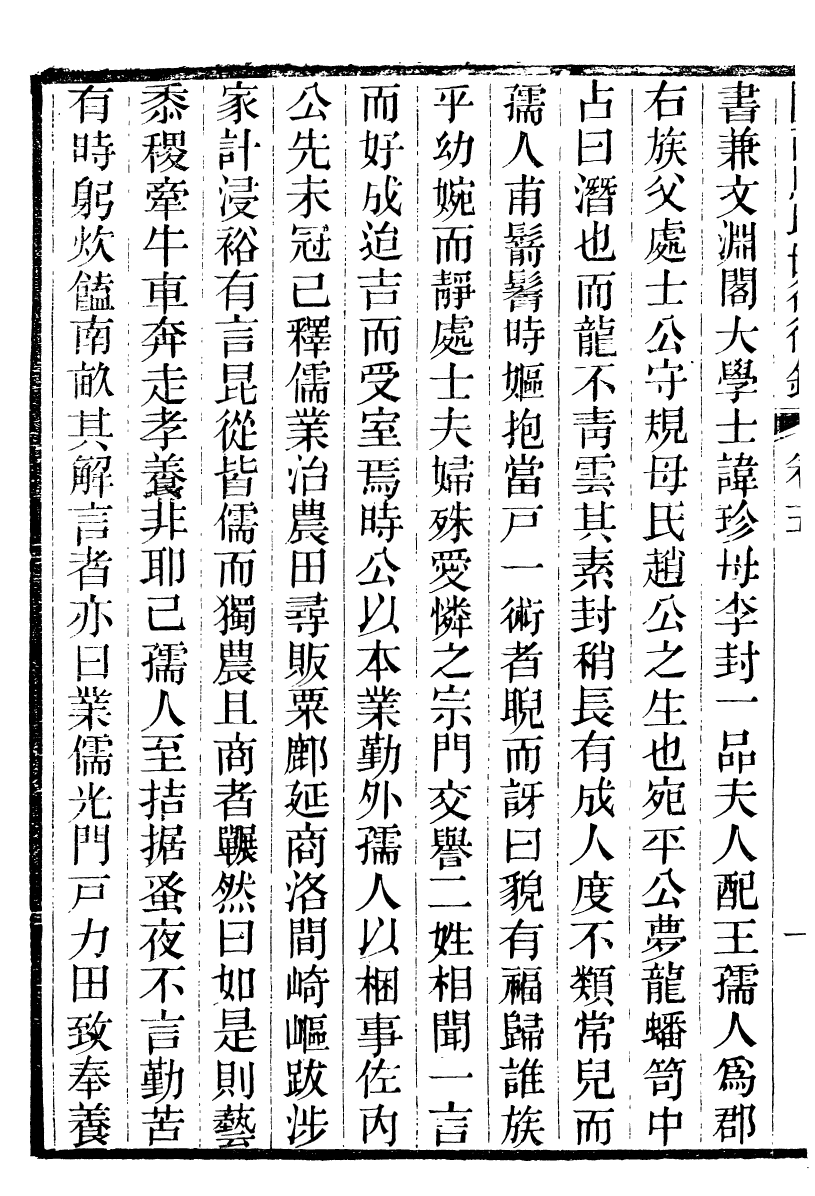 書兼文淵閣大學士諱珍母李封一品夫人配王孺人爲郡
右族父處士公守規母氏趙公之生也宛平公夢龍蟠笥中
占曰潛也而龍不靑雲其素封稍長有成人度不類常兒而
孺人甫鬋鬌時嫗抱當戸一術者睨而訝曰貌有福歸誰族
乎幼婉而靜處士夫婦殊愛憐之宗門交譽二姓相聞一言
而好成迨吉而受室焉時公以本業勤外孺人以梱事佐內
公先未冠已釋儒業治農田尋販粟鄜延商洛間崎嶇跋涉
家計浸裕有言昆從皆儒而獨農且商者囅然曰如是則藝
黍稷牽牛車奔走孝養非耶己孺人至拮据蚤夜不言勤苦
有時躬炊饁南畝其解言者亦曰業儒光門戸力田致奉養